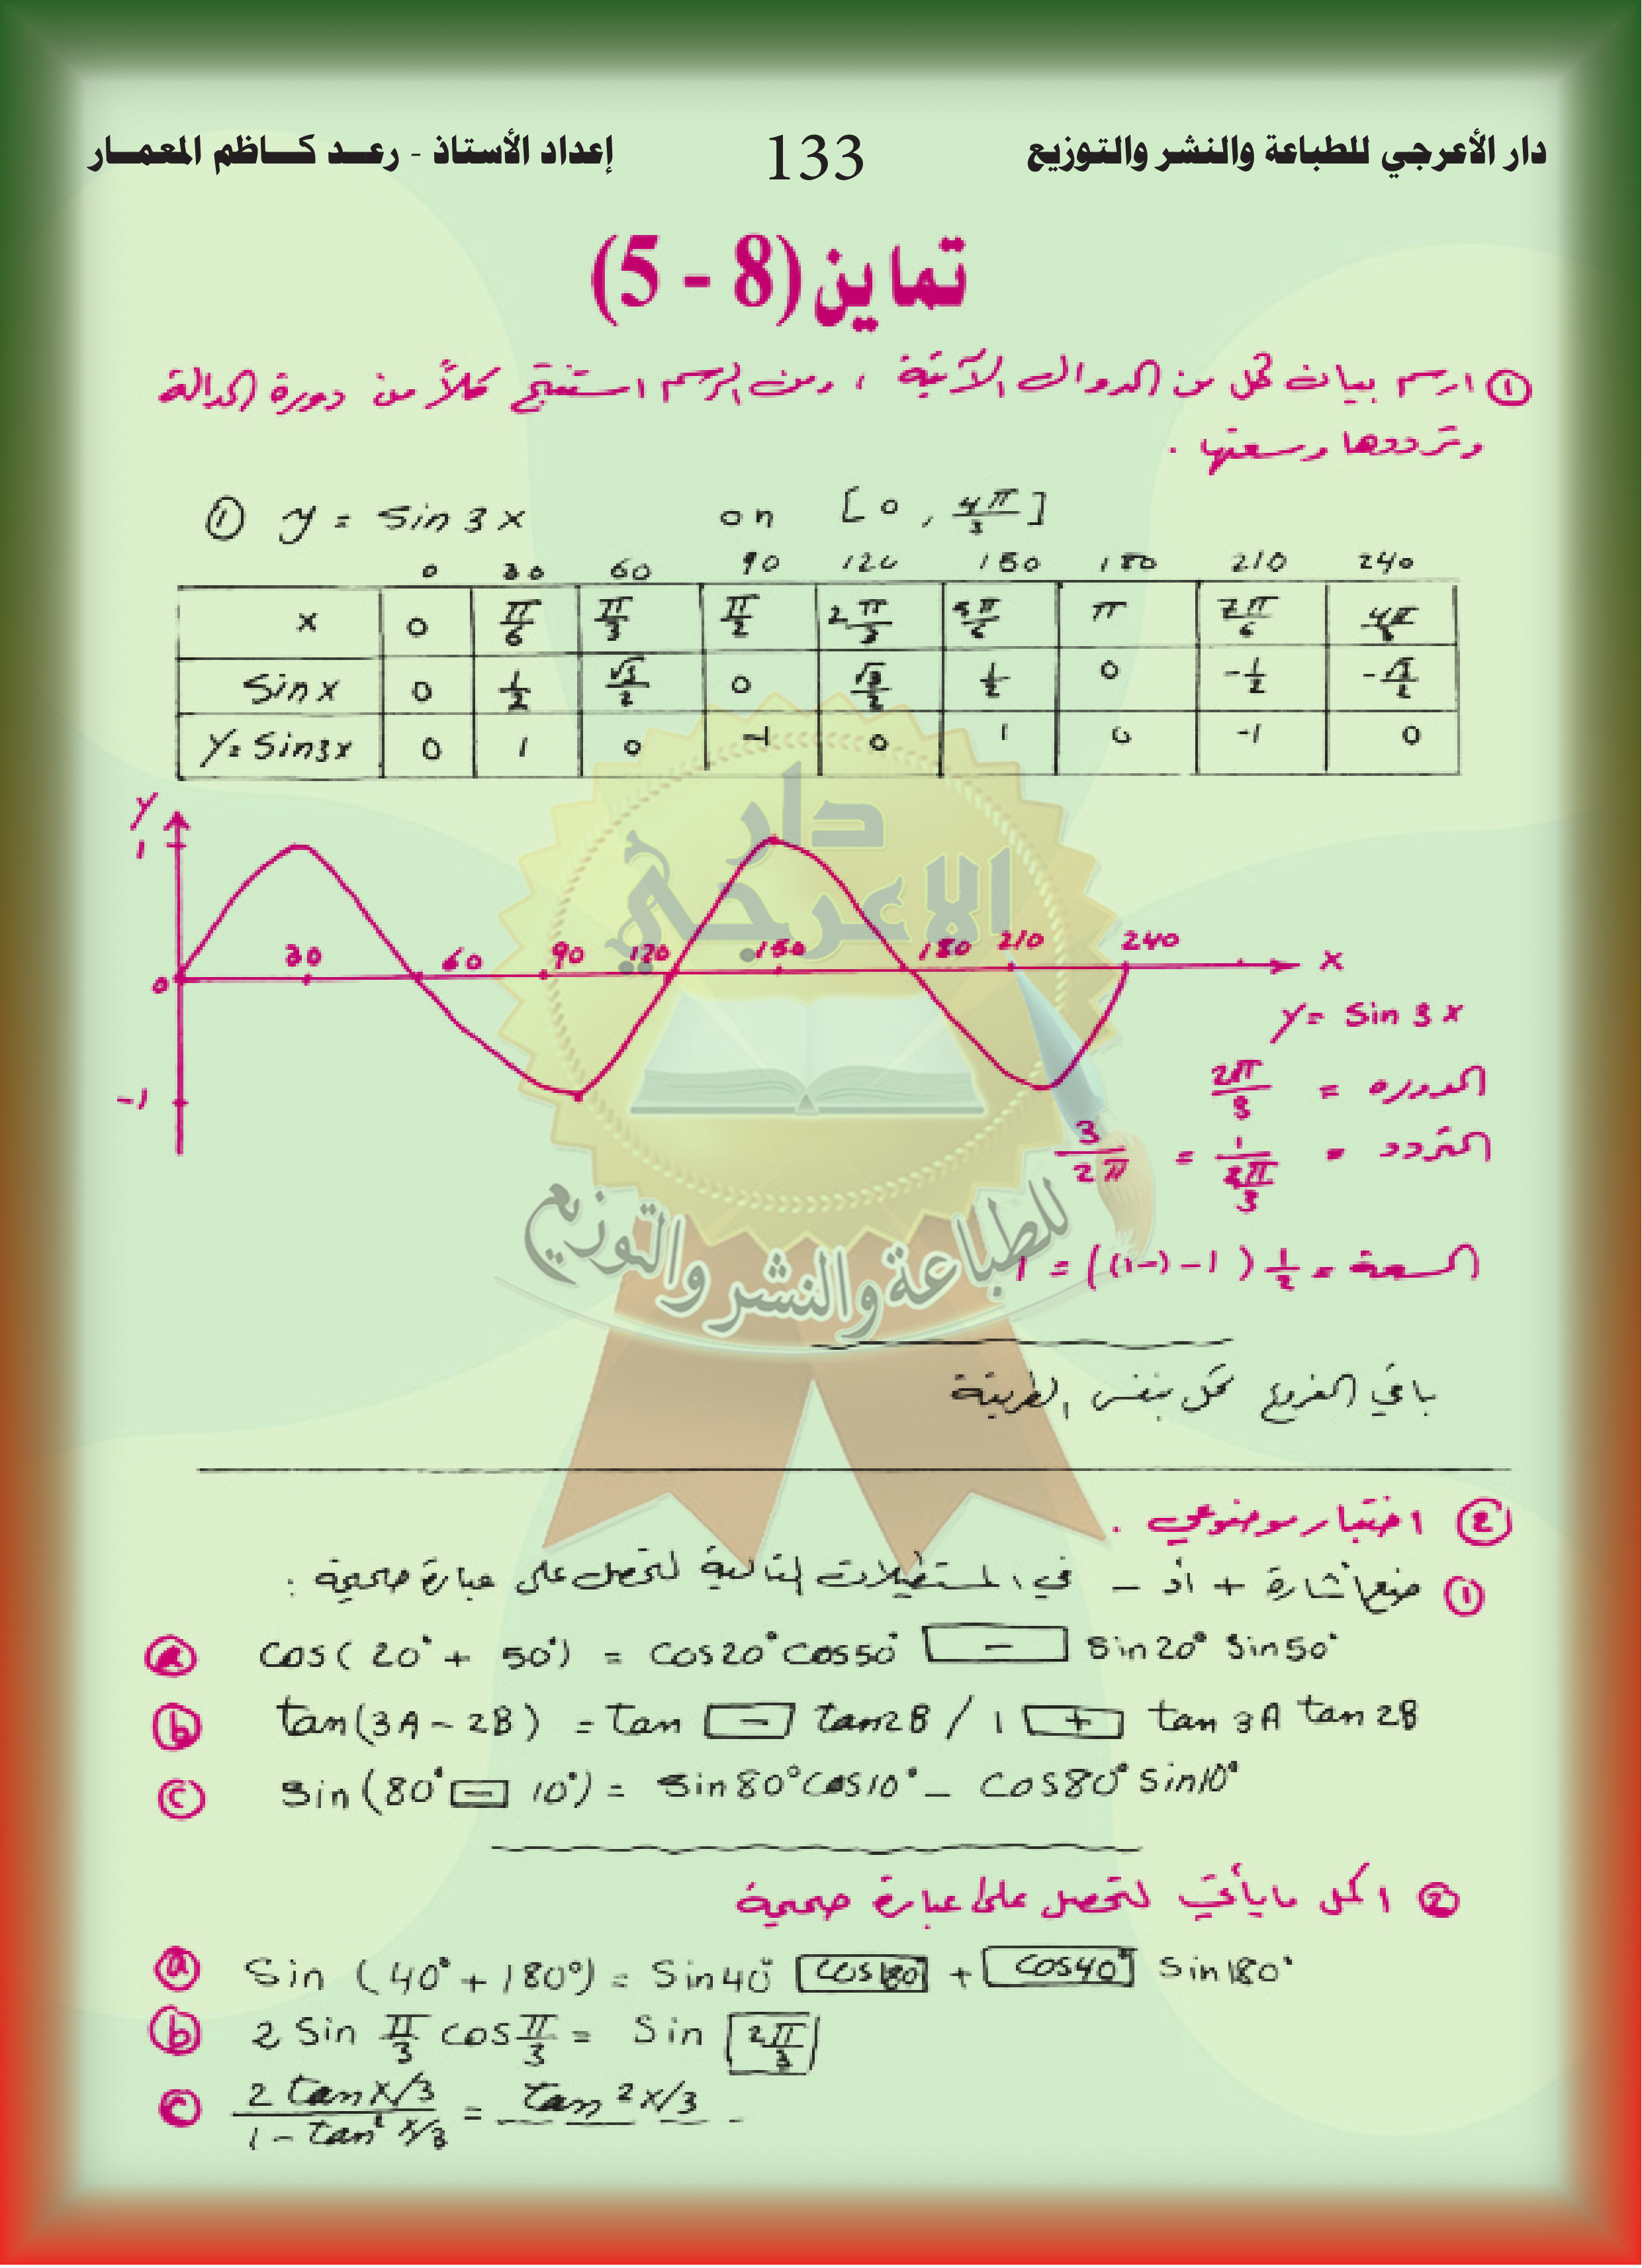 دار الأعرجي للطباعة والنشر والتوزيع 133 إعداد الأستاذ - رعـد كـاظم المعمـار
تماين (8 - 5)
① ارسم بيان كل من الدوال الآتية ، ومن الرسم استنتج كلاً من دورة الدالة
وترددها وسعتها .
① y = sin 3x on [0 , 4π/3]
0 30 60 90 120 150 180 210 240
x 0 π/6 π/3 π/2 2π/3 5π/6 π 7π/6 4π/3
Sin x 0 1/2 √3/2 0 √3/2 1/2 0 -1/2 -√3/2
Y= Sin3x 0 1 0 -1 0 1 0 -1 0
y
1
30 60 90 120 150 180 210 240 x
0
-1
y = Sin 3x
الدورة = 2π/3
التردد = 1/(2π/3) = 3/2π
السعة = 1/2 (1 - (-1)) = 1
دار
الاعرجي
للطباعة والنشر والتوزيع
باقي الفروع تحل بنفس الطريقة
② اختبار موضوعي .
① ضع إشارة + أو - في المستطيلات التالية لتحصل على عبارة صحيحة :
ⓐ cos( 20° + 50°) = cos20° cos50° - Sin20° Sin50°
ⓑ tan(3A - 2B) = tan - tan2B / 1 + tan 3A tan 2B
ⓒ Sin(80° - 10°) = Sin80° cos10° - cos80° Sin10°
② اكمل ما يأتي لتحصل على عبارة صحيحة
ⓐ Sin (40° + 180°) = Sin40° cos180° + cos40° Sin180°
ⓑ 2 Sin π/3 cos π/3 = Sin 2π/3
ⓒ 2 tan x/3 / 1 - tan² x/3 = tan 2x/3